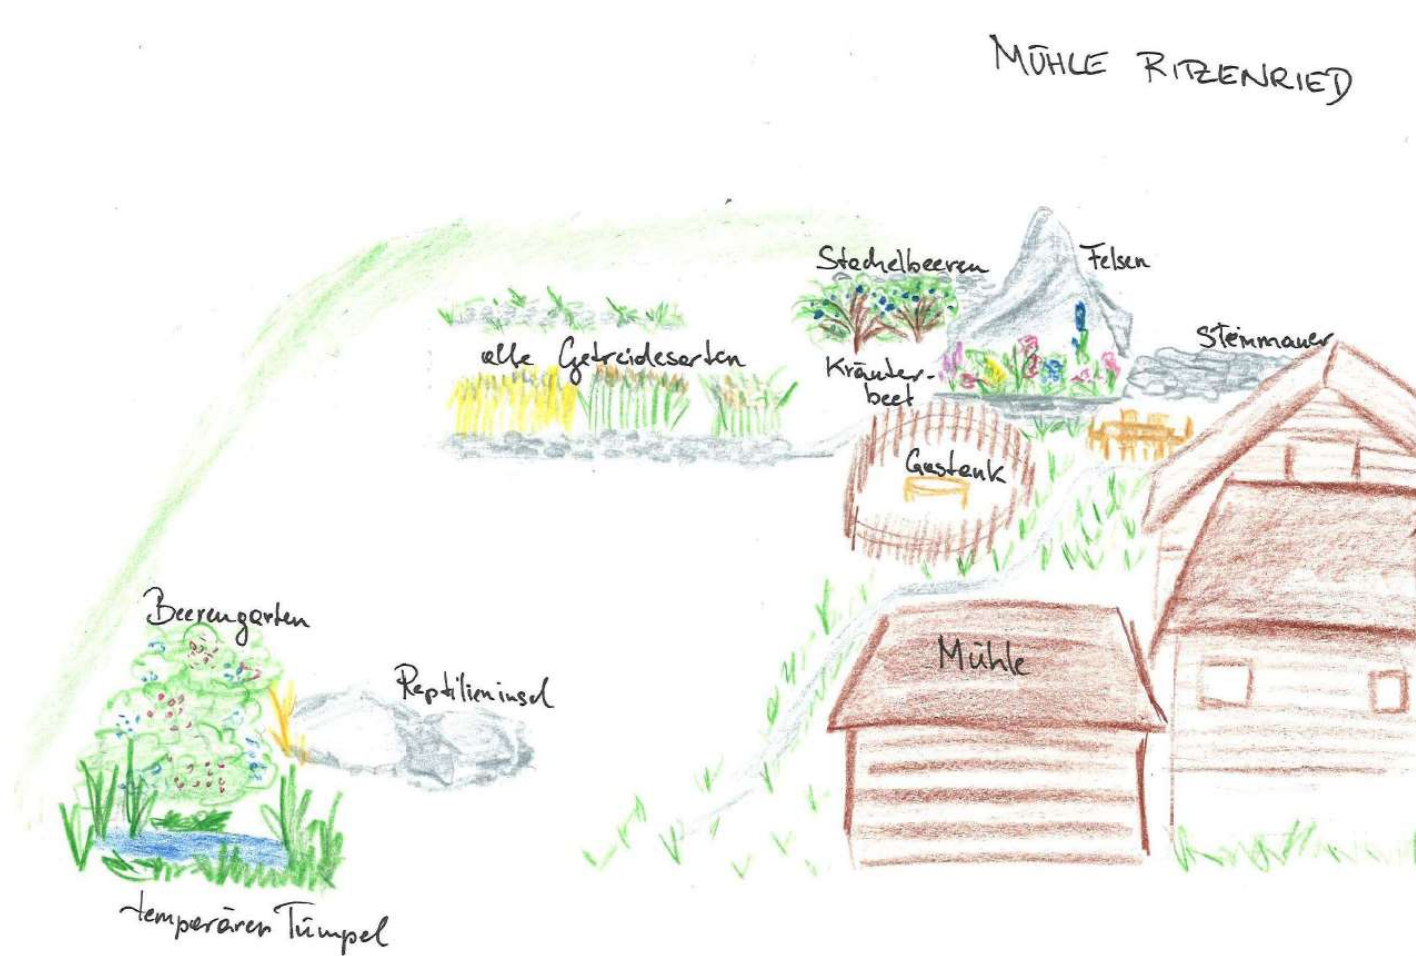 MÜHLE RITZENRIED
Stachelbeeren
Felsen
Steinmauer
alte Getreidesorten
Kräuter-
beet
Mühle
Beerengarten
Reptilieninsel
temporärer Tümpel